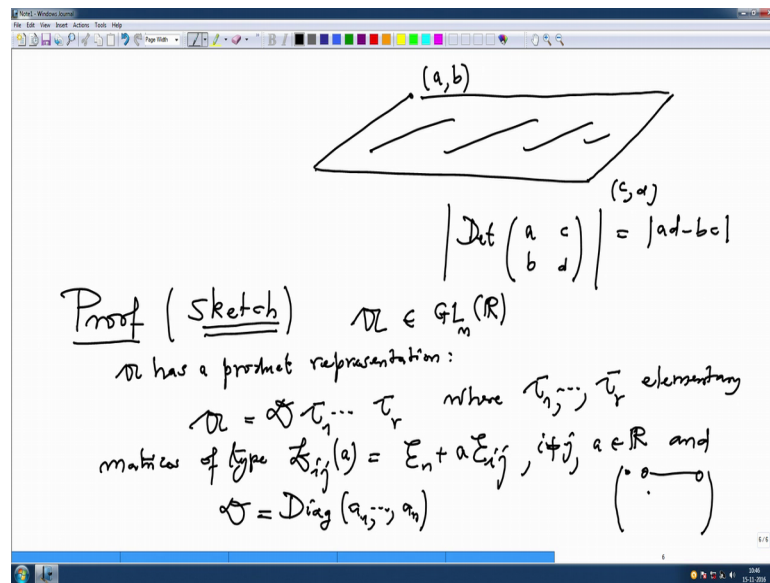 Note1 - Windows Journal
File Edit View Insert Actions Tools Help
Page Width
(a,b)
(c,d)
| Det ( a c
b d ) | = |ad-bc|
Proof (Sketch) 𝔄 ∈ GL_n(ℝ)
𝔄 has a product representation:
𝔄 = 𝔇 τ_1 ... τ_r where τ_1, ..., τ_r elementary
matrices of type 𝔅_ij(a) = 𝔈_n + a 𝔈_ij, i≠j, a ∈ ℝ and
𝔇 = Diag (a_1, ..., a_n)
6/6
6
10:46
15-11-2016